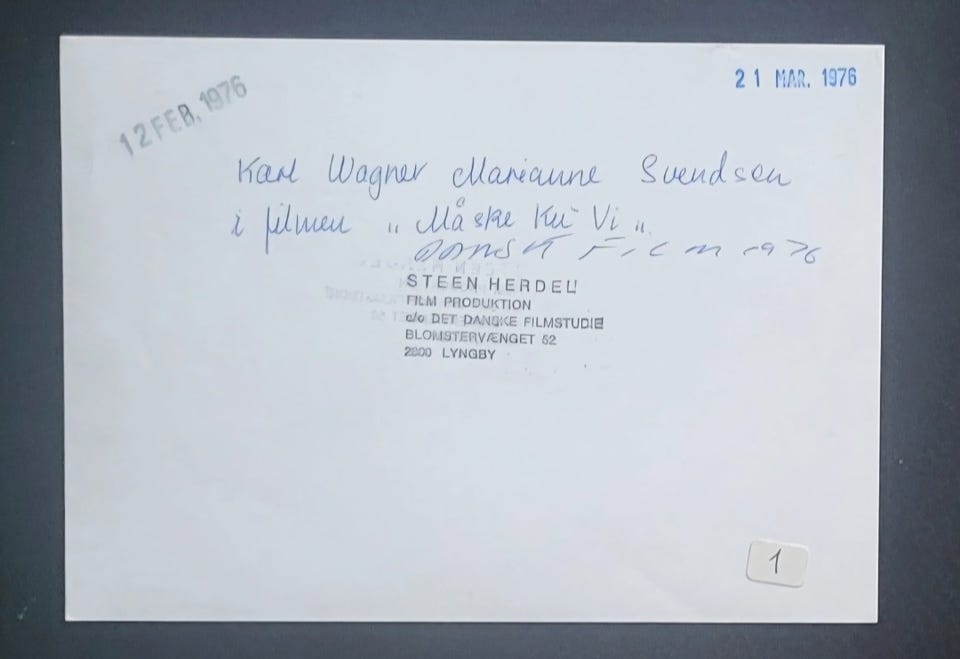 12 FEB. 1976
21 MAR. 1976
Karl Wagner Marianne Svendsen
i filmen „Måske Ku' Vi"
DANSK FILM 1976
STEEN HERDEL
FILM PRODUKTION
c/o DET DANSKE FILMSTUDIE
BLOMSTERVÆNGET 52
2800 LYNGBY
1